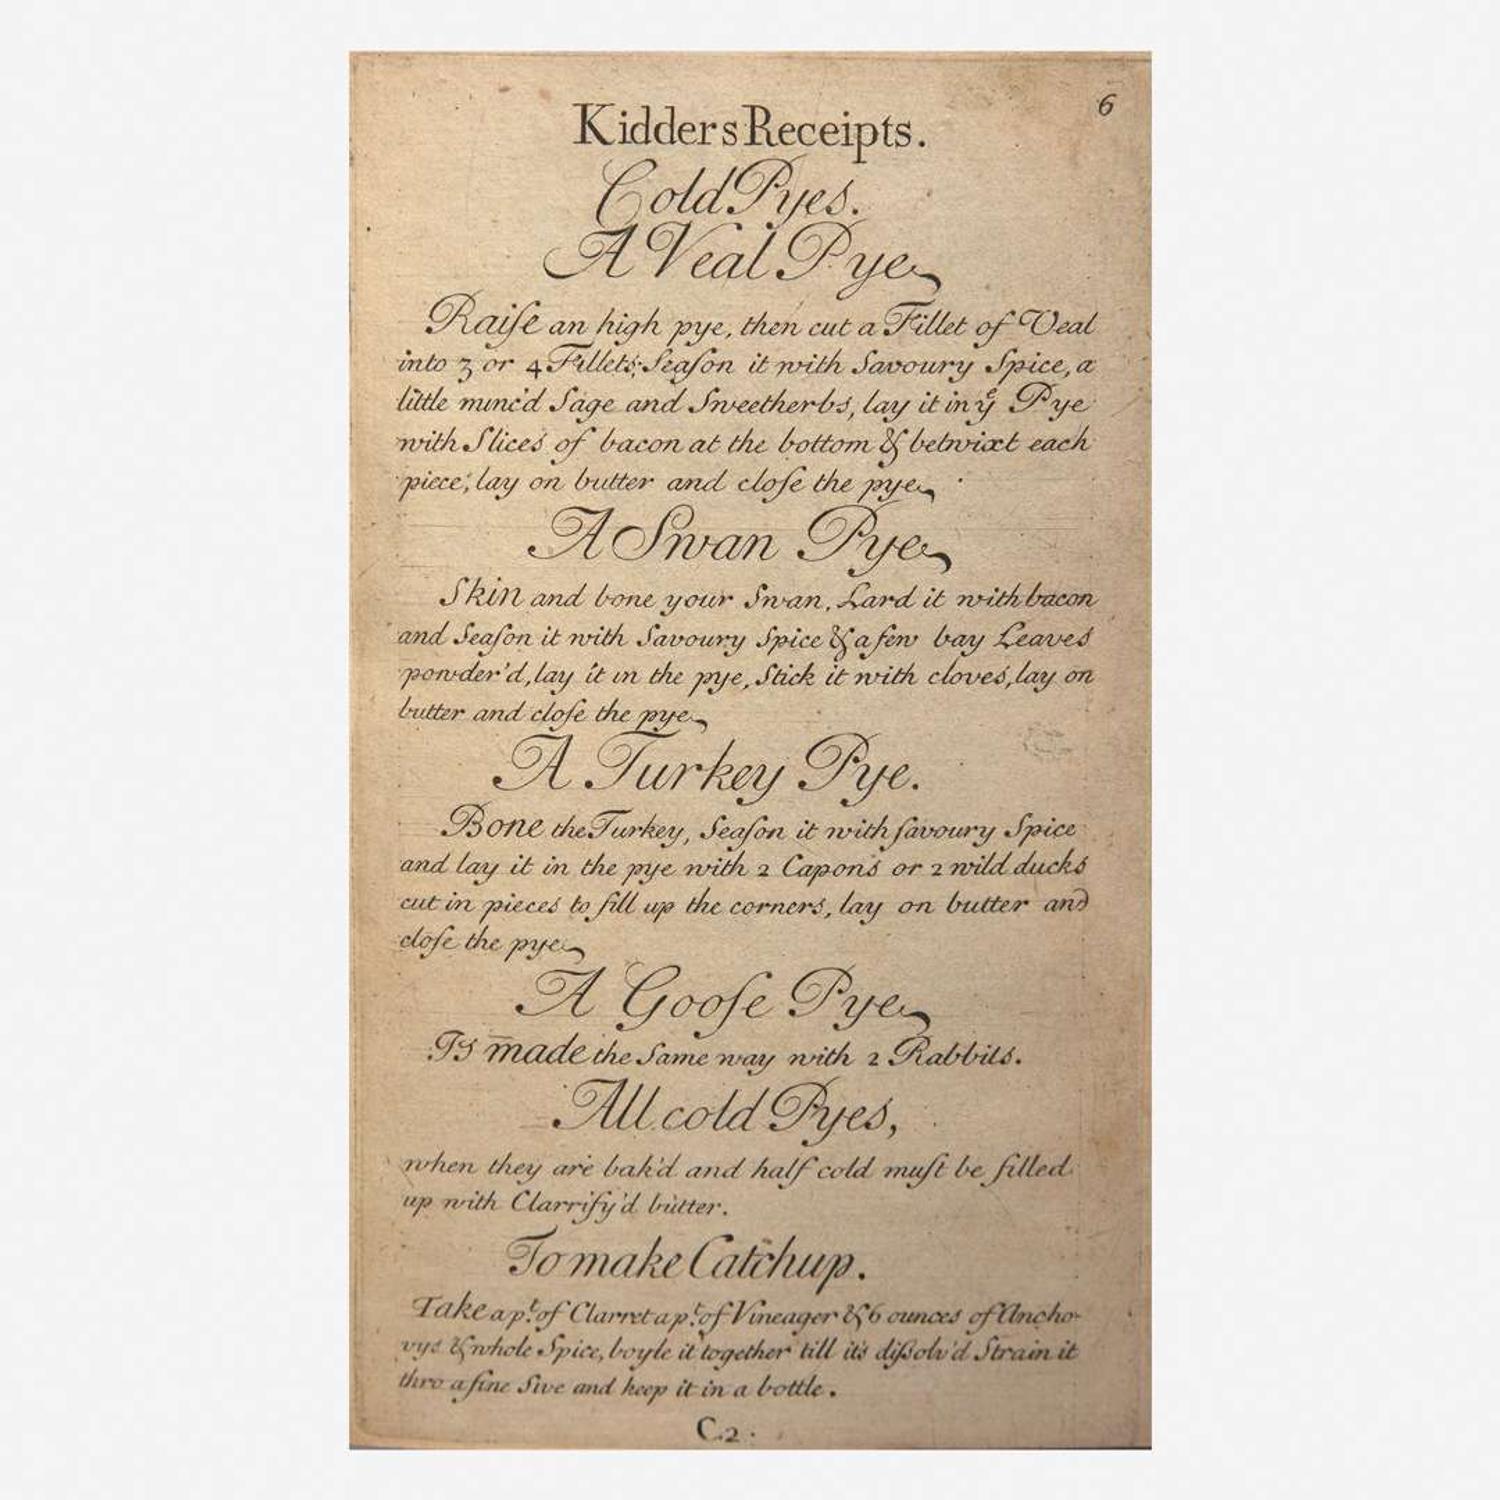 6
Kidders Receipts.
Cold Pyes.
A Veal Pye
Raiſe an high pye, then cut a Fillet of Veal
into 3 or 4 Fillets; Seaſon it with Savoury Spice, a
little minc'd Sage and Sweetherbs, lay it in yͤ Pye
with Slices of bacon at the bottom & betwixt each
piece, lay on butter and cloſe the pye
A Swan Pye
Skin and bone your Swan, Lard it with bacon
and Seaſon it with Savoury Spice & a few bay Leaves
powder'd, lay it in the pye, Stick it with cloves, lay on
butter and cloſe the pye
A Turkey Pye.
Bone the Turkey, Seaſon it with ſavoury Spice
and lay it in the pye with 2 Capons or 2 wild ducks
cut in pieces to fill up the corners, lay on butter and
cloſe the pye
A Gooſe Pye
Is made the Same way with 2 Rabbits.
All cold Pyes,
when they are bak'd and half cold muſt be filled
up with Clarrify'd butter.
To make Catchup.
Take a pt. of Clarret a pt. of Vineager & 6 ounces of Ancho-
vys & whole Spice, boyle it together till it's diſsolv'd Strain it
thro a fine Sive and keep it in a bottle.
C.2.